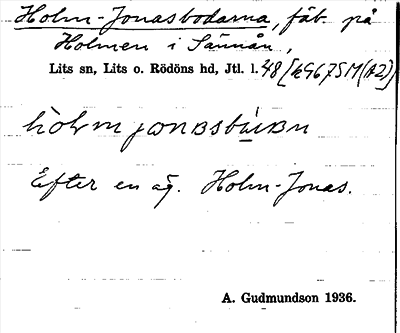 Holm-Jonasbodarna, fäb. på
Holmen i Sännån,
Lits sn, Lits o. Rödöns hd, Jtl. l. 48
Efter en äg. Holm-Jonas.
A. Gudmundson 1936.